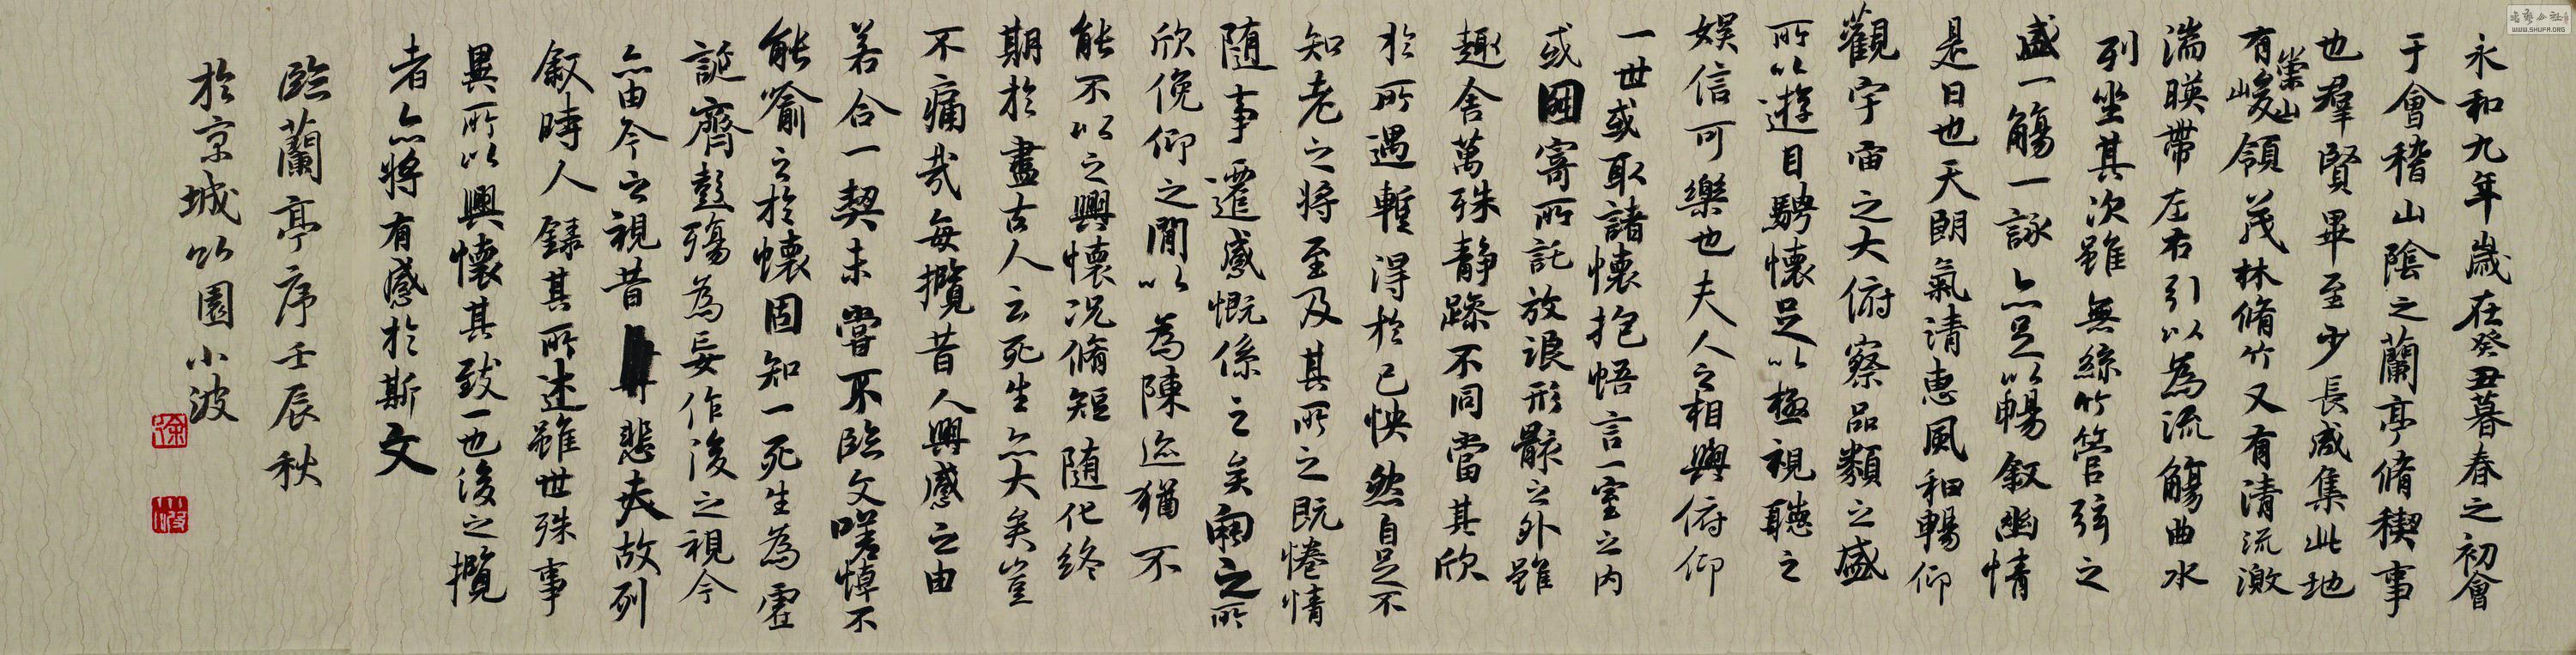 永和九年歲在癸丑暮春之初會
于會稽山陰之蘭亭脩稧事
也羣賢畢至少長咸集此地
有崇山峻領茂林脩竹又有清流激
湍暎帶左右引以為流觴曲水
列坐其次雖無絲竹管弦之
盛一觴一詠亦足以暢敘幽情
是日也天朗氣清惠風和暢仰
觀宇宙之大俯察品類之盛
所以遊目騁懷足以極視聽之
娛信可樂也夫人之相與俯仰
一世或取諸懷抱悟言一室之內
或因寄所託放浪形骸之外雖
趣舍萬殊靜躁不同當其欣
於所遇暫得於己怏然自足不
知老之將至及其所之既惓情
隨事遷感慨係之矣向之所
欣俛仰之閒以為陳迹猶不
能不以之興懷況脩短隨化終
期於盡古人云死生亦大矣豈
不痛哉每攬昔人興感之由
若合一契未嘗不臨文嗟悼不
能喻之於懷固知一死生為虛
誕齊彭殤為妄作後之視今
亦由今之視昔悲夫故列
敘時人錄其所述雖世殊事
異所以興懷其致一也後之攬
者亦將有感於斯文
臨蘭亭序壬辰秋
於京城竹園小波
徐
WWW.SHUFA.ORG